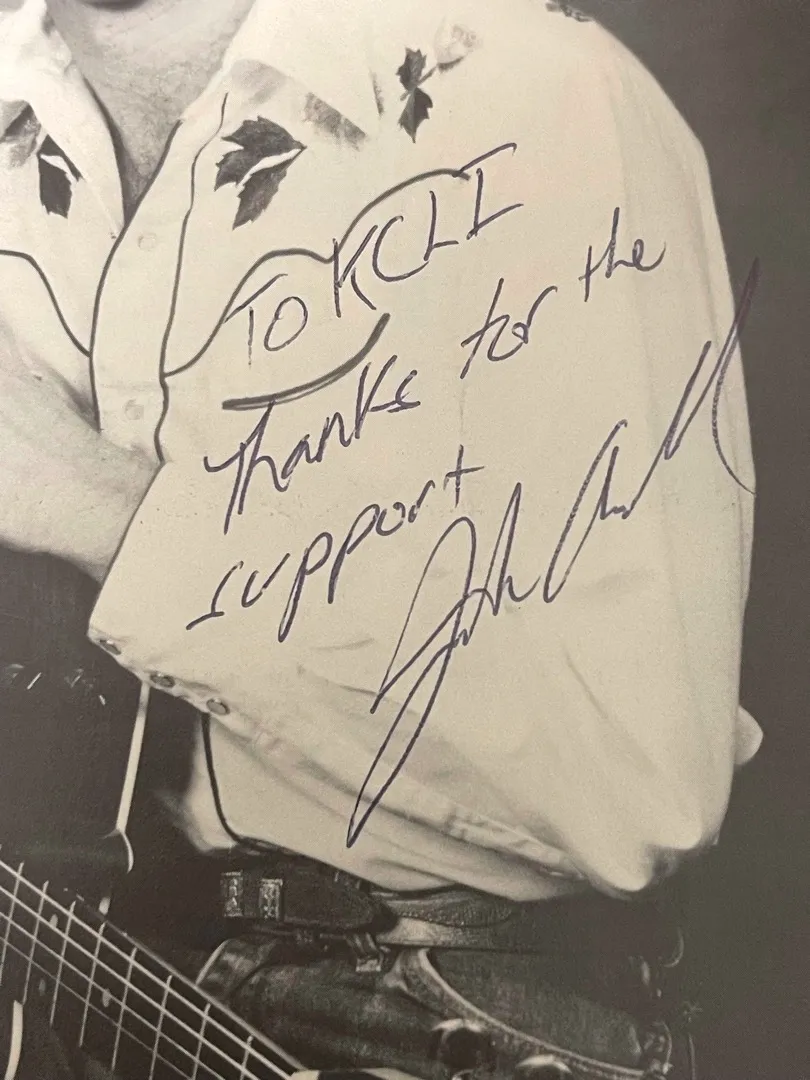 To KCLI
Thanks for the
support
John